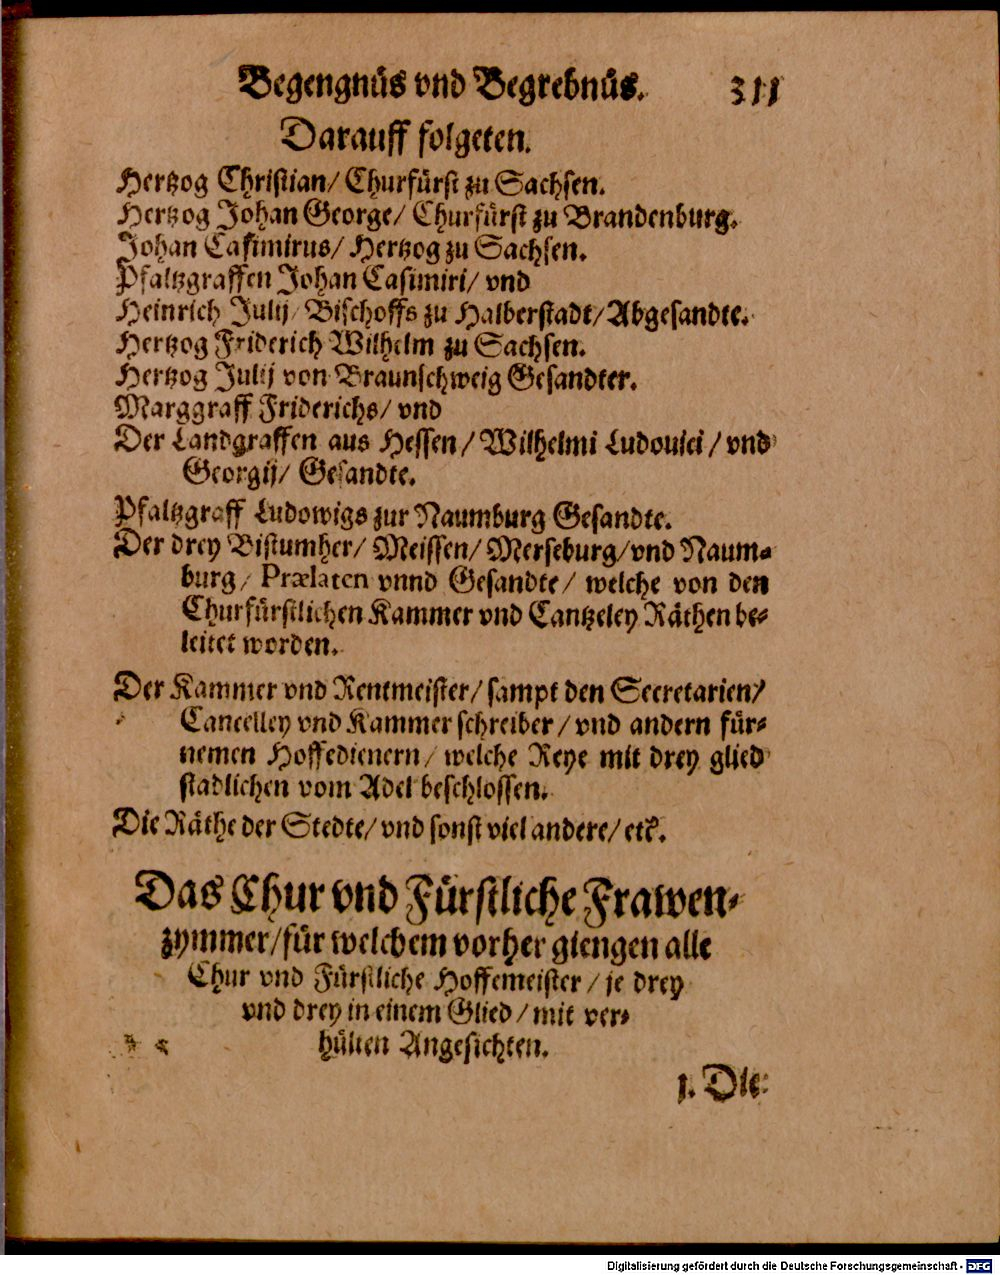 Begengnüs vnd Begrebnüs. 311
Darauff folgeten.
Hertzog Christian/ Churfürst zu Sachsen.
Hertzog Johan George/ Churfürst zu Brandenburg.
Johan Casimirus/ Hertzog zu Sachsen.
Pfaltzgraffen Johan Casimiri/ vnd
Heinrich Julij/ Bischoffs zu Halberstadt/ Abgesandte.
Hertzog Friderich Wilhelm zu Sachsen.
Hertzog Julij von Braunschweig Gesandter.
Marggraff Friderichs/ vnd
Der Landgraffen aus Hessen/ Wilhelmi Ludouici/ vnd
Georgij/ Gesandte.
Pfaltzgraff Ludowigs zur Naumburg Gesandte.
Der drey Bistumher/ Meissen/ Merseburg/ vnd Naum-
burg/ Prælaten vnnd Gesandte/ welche von den
Churfürstlichen Kammer vnd Cantzeley Räthen be-
leitet worden.
Der Kammer vnd Rentmeister/ sampt den Secretarien/
Cancelley vnd Kammerschreiber/ vnd andern für-
nemen Hoffedienern/ welche Reye mit drey glied
stadlichen vom Adel beschlossen.
Die Räthe der Stedte/ vnd sonst viel andere/ etc.
Das Chur vnd Fürstliche Frawen-
zymmer/ für welchem vorher giengen alle
Chur vnd Fürstliche Hoffemeister/ je drey
vnd drey in einem Glied/ mit ver-
hülten Angesichten.
1. Die
Digitalisierung gefördert durch die Deutsche Forschungsgemeinschaft - DFG